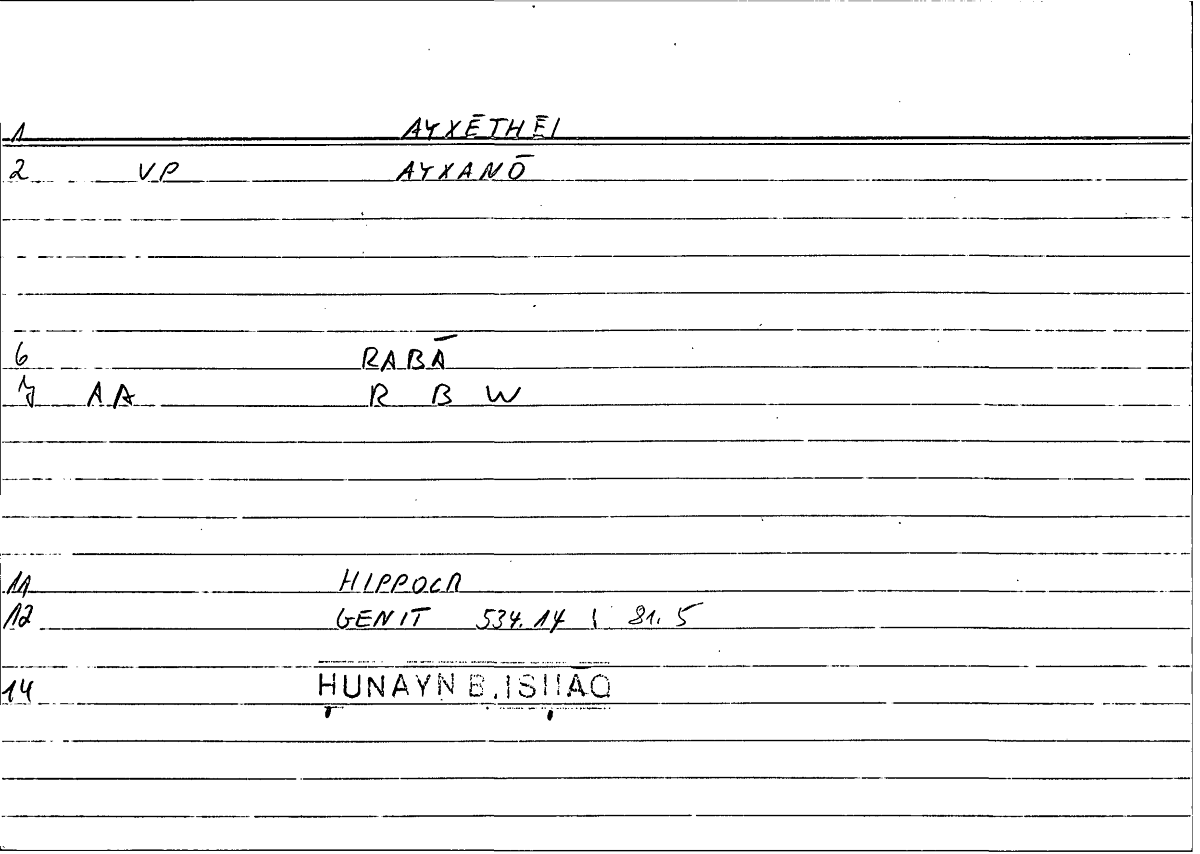 1 AYXĒTHĒI
2 VP AYXANŌ
6 RABĀ
7 AA R B W
11 HIPPOCR
12 GENIT 534.14 ; 81.5
14 ḤUNAYN B. ISḤĀQ